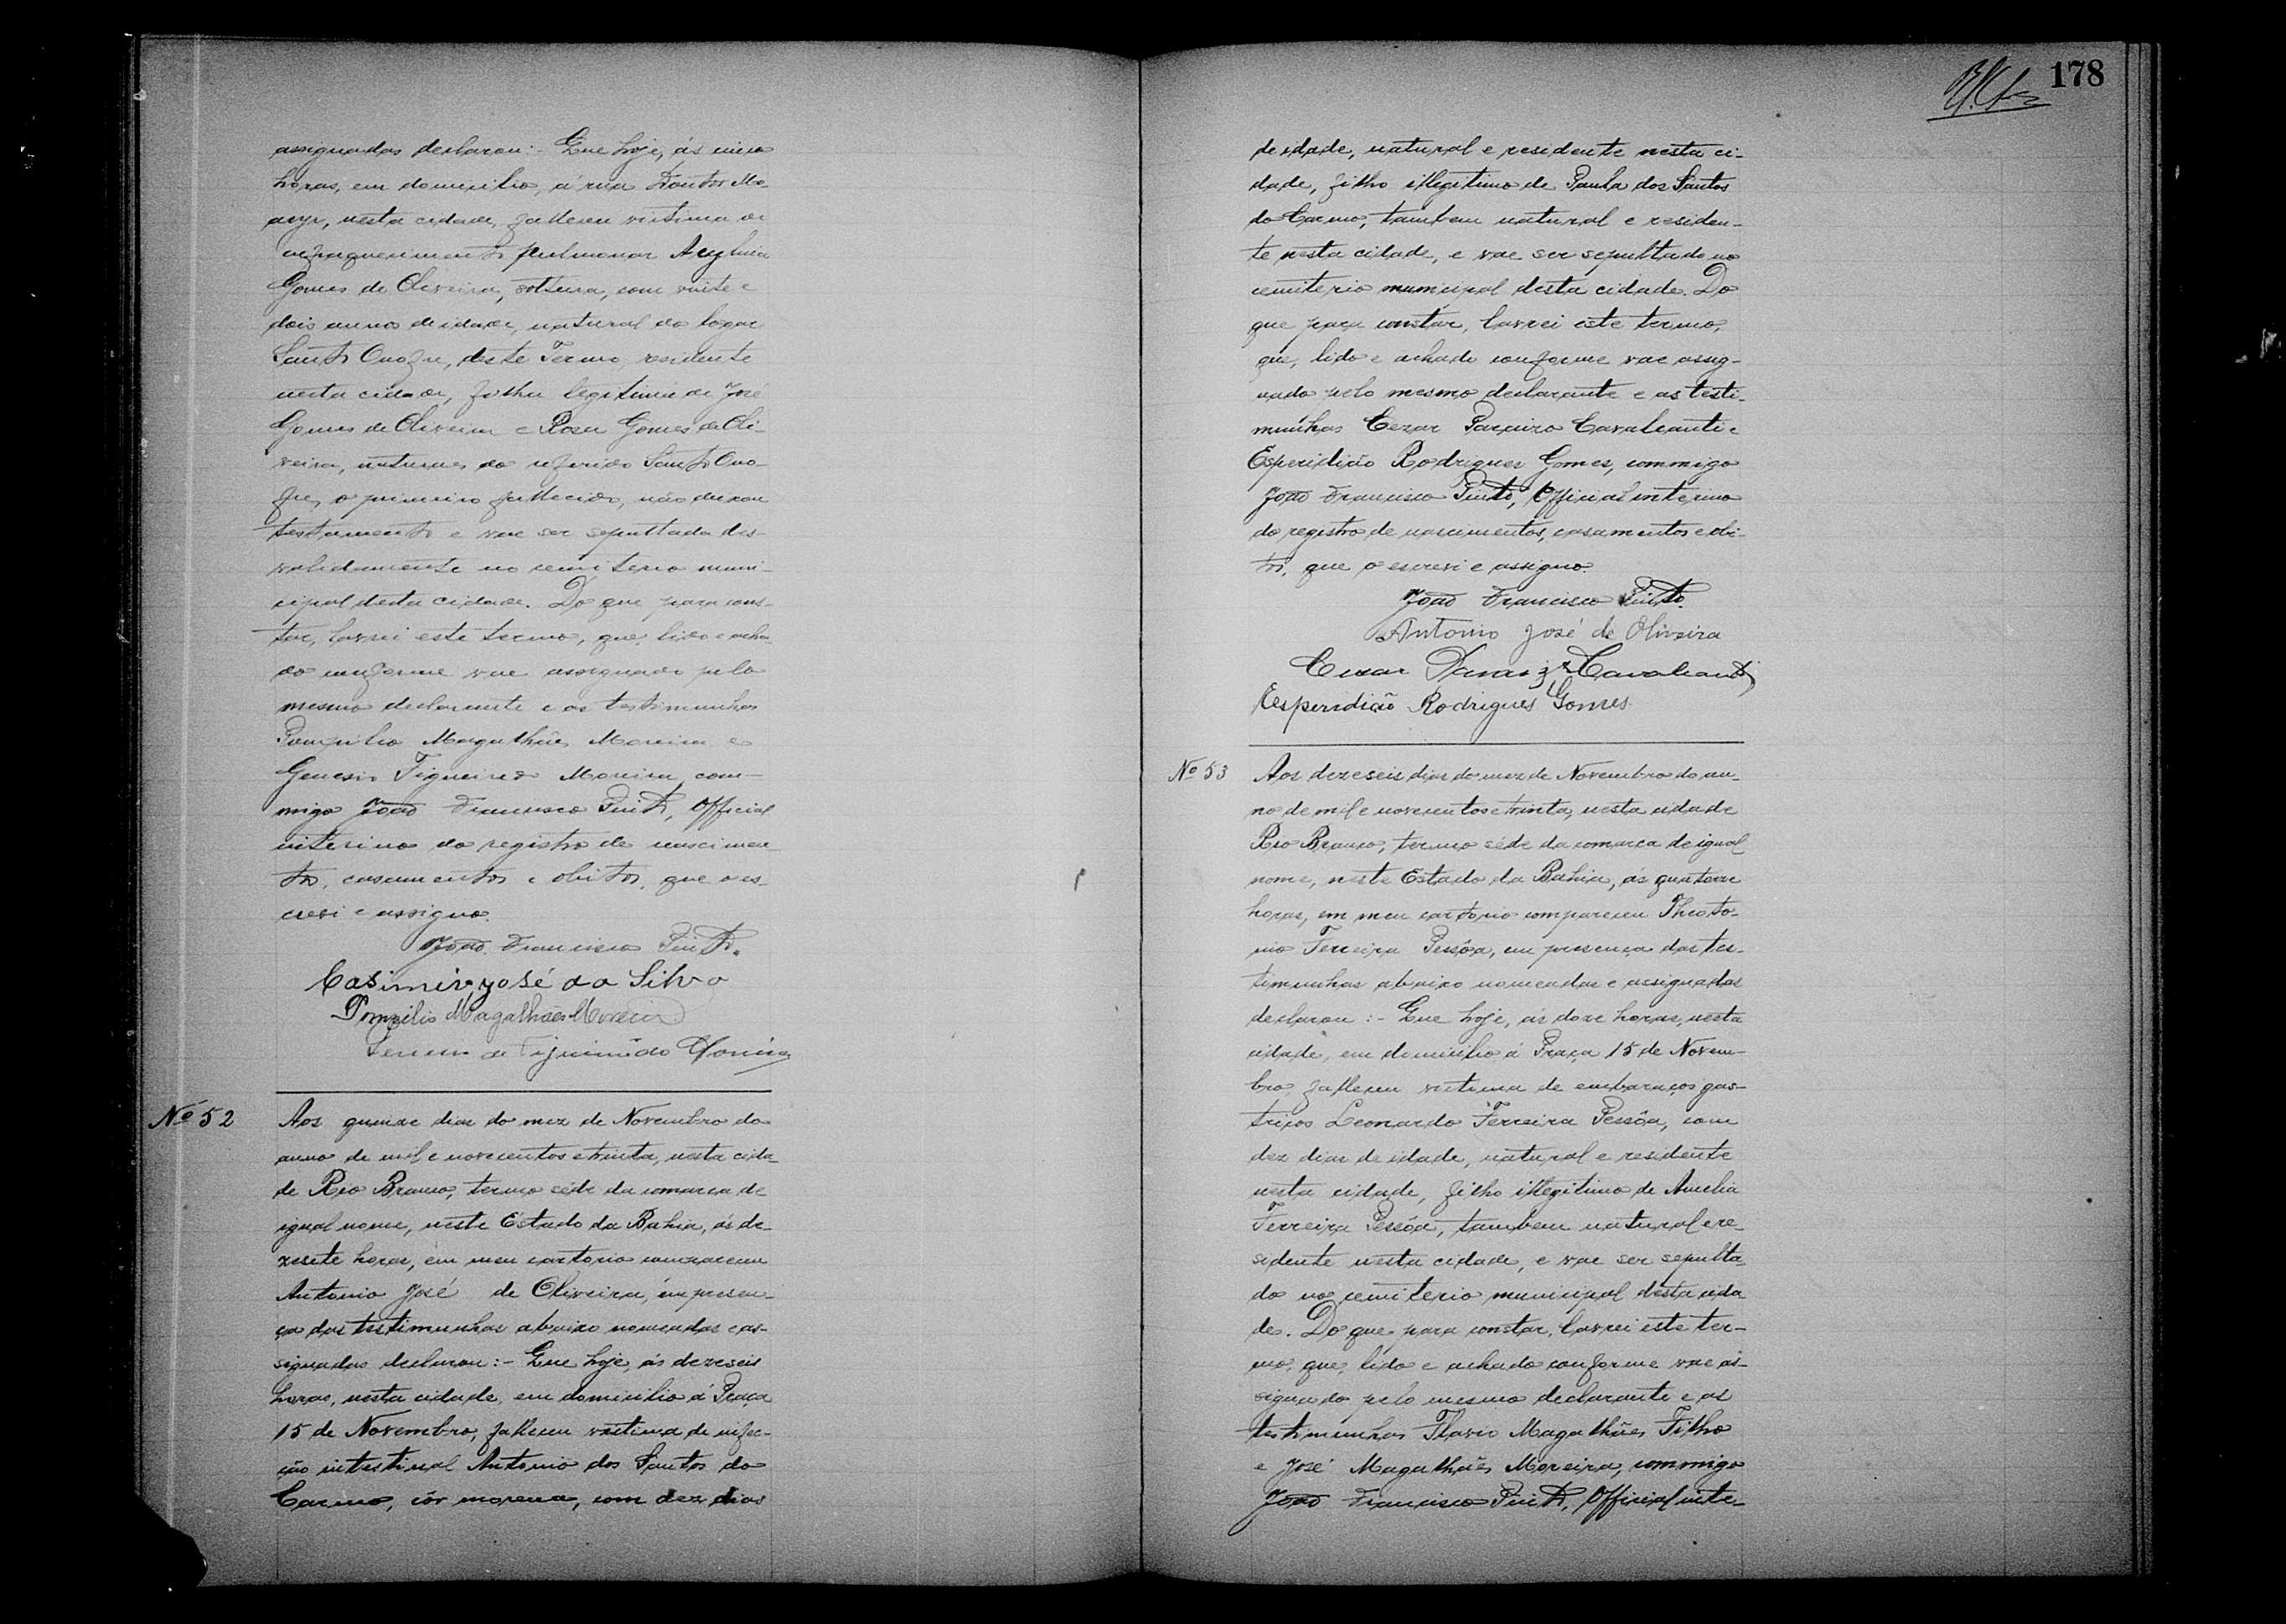 assignadas declarou:- Que hoje, ás cinco
horas, em domicilio, á rua Doutor Mo
acyr, nesta cidade, falleceu victima de
enfraquecimento pulmonar
Gomes de Oliveira, solteira, com vinte e
dois annos de idade, natural do logar
Santo Onofre, deste Termo, residente
nesta cidade, filha legitima de José
Gomes de Oliveira e Rosa Gomes de Oli-
veira, naturaes do referido Santo Ono-
fre, o primeiro fallecido, não deixou
testamento e vae ser sepultada des-
validamente no cemiterio muni-
cipal desta cidade. Do que para cons-
tar, lavrei este termo, que, lido e acha-
do conforme vae assignado pelo
mesmo declarante e as testimunhas
Pompilio Magalhães Moreira e
Genesio Figueiredo Moreira, com-
migo João Francisco Pinto, Official
interino do registro de nascimen
tos, casamentos e obitos, que o es-
crevi e assigno.
João Francisco Pinto.
Casimiro José da Silva
Pompilio Magalhães Moreira
de Figueirêdo
Nº 52
Aos quinze dias do mez de Novembro do
anno de mil e novecentos e trinta, nesta cida-
de Rio Branco, termo séde da comarca de
igual nome, neste Estado da Bahia, ás de-
zesete horas, em meu cartorio compareceu
Antonio José de Oliveira, em presen-
ça das testimunhas abaixo nomeadas e as-
signadas declarou:- Que hoje, ás dezeseis
horas, nesta cidade, em domicilio á Praça
15 de Novembro, falleceu victima de infec-
ção intestinal Antonio dos Santos do
Carmo, côr morena, com dez dias
178
de idade, natural e residente nesta ci-
dade, filho illegitimo de Paula dos Santos
do Carmo, tambem natural e residen-
te nesta cidade, e vae ser sepultado no
cemiterio municipal desta cidade. Do
que para constar, lavrei este termo,
que, lido e achado conforme vae assig-
nado pelo mesmo declarante e as testi-
munhas Cezar Paraizo Cavalcanti e
Esperidião Rodrigues Gomes, commigo
João Francisco Pinto, Official interino
do registro de nascimentos, casamentos e obi-
tos, que o escrevi e assigno.
João Francisco Pinto.
Antonio José de Oliveira
Cezar Paraizo Cavalcanti
Esperidião Rodrigues Gomes
Nº 53
Aos dezeseis dias do mez de Novembro do an-
no de mil e novecentos e trinta, nesta cidade
Rio Branco, termo séde da comarca de igual
nome, neste Estado da Bahia, ás quatorze
horas, em meu cartorio compareceu Theoto-
nio Ferreira Pessôa, em presença das tes-
timunhas abaixo nomeadas e assignadas
declarou:- Que hoje, ás doze horas, nesta
cidade, em domicilio á Praça 15 de Novem-
bro, falleceu victima de embaraços gas-
tricos Leonardo Ferreira Pessôa, com
dez dias de idade, natural e residente
nesta cidade, filho illegitimo de Amelia
Ferreira Pessôa, tambem natural e re-
sidente nesta cidade, e vae ser sepulta-
do no cemiterio municipal desta cida
de. Do que para constar, lavrei este ter-
mo, que, lido e achado conforme vae as-
signado pelo mesmo declarante e as
testimunhas Flavio Magalhães Filho
e José Magalhães Moreira, commigo
João Francisco Pinto, Official inte-